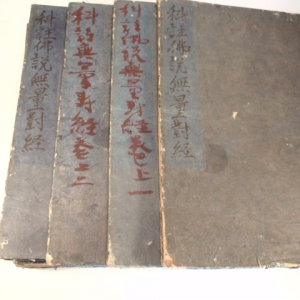 科註佛説無量壽経
科註佛説無量壽経巻上一
科註無量壽経巻上二
科註佛説無量壽経